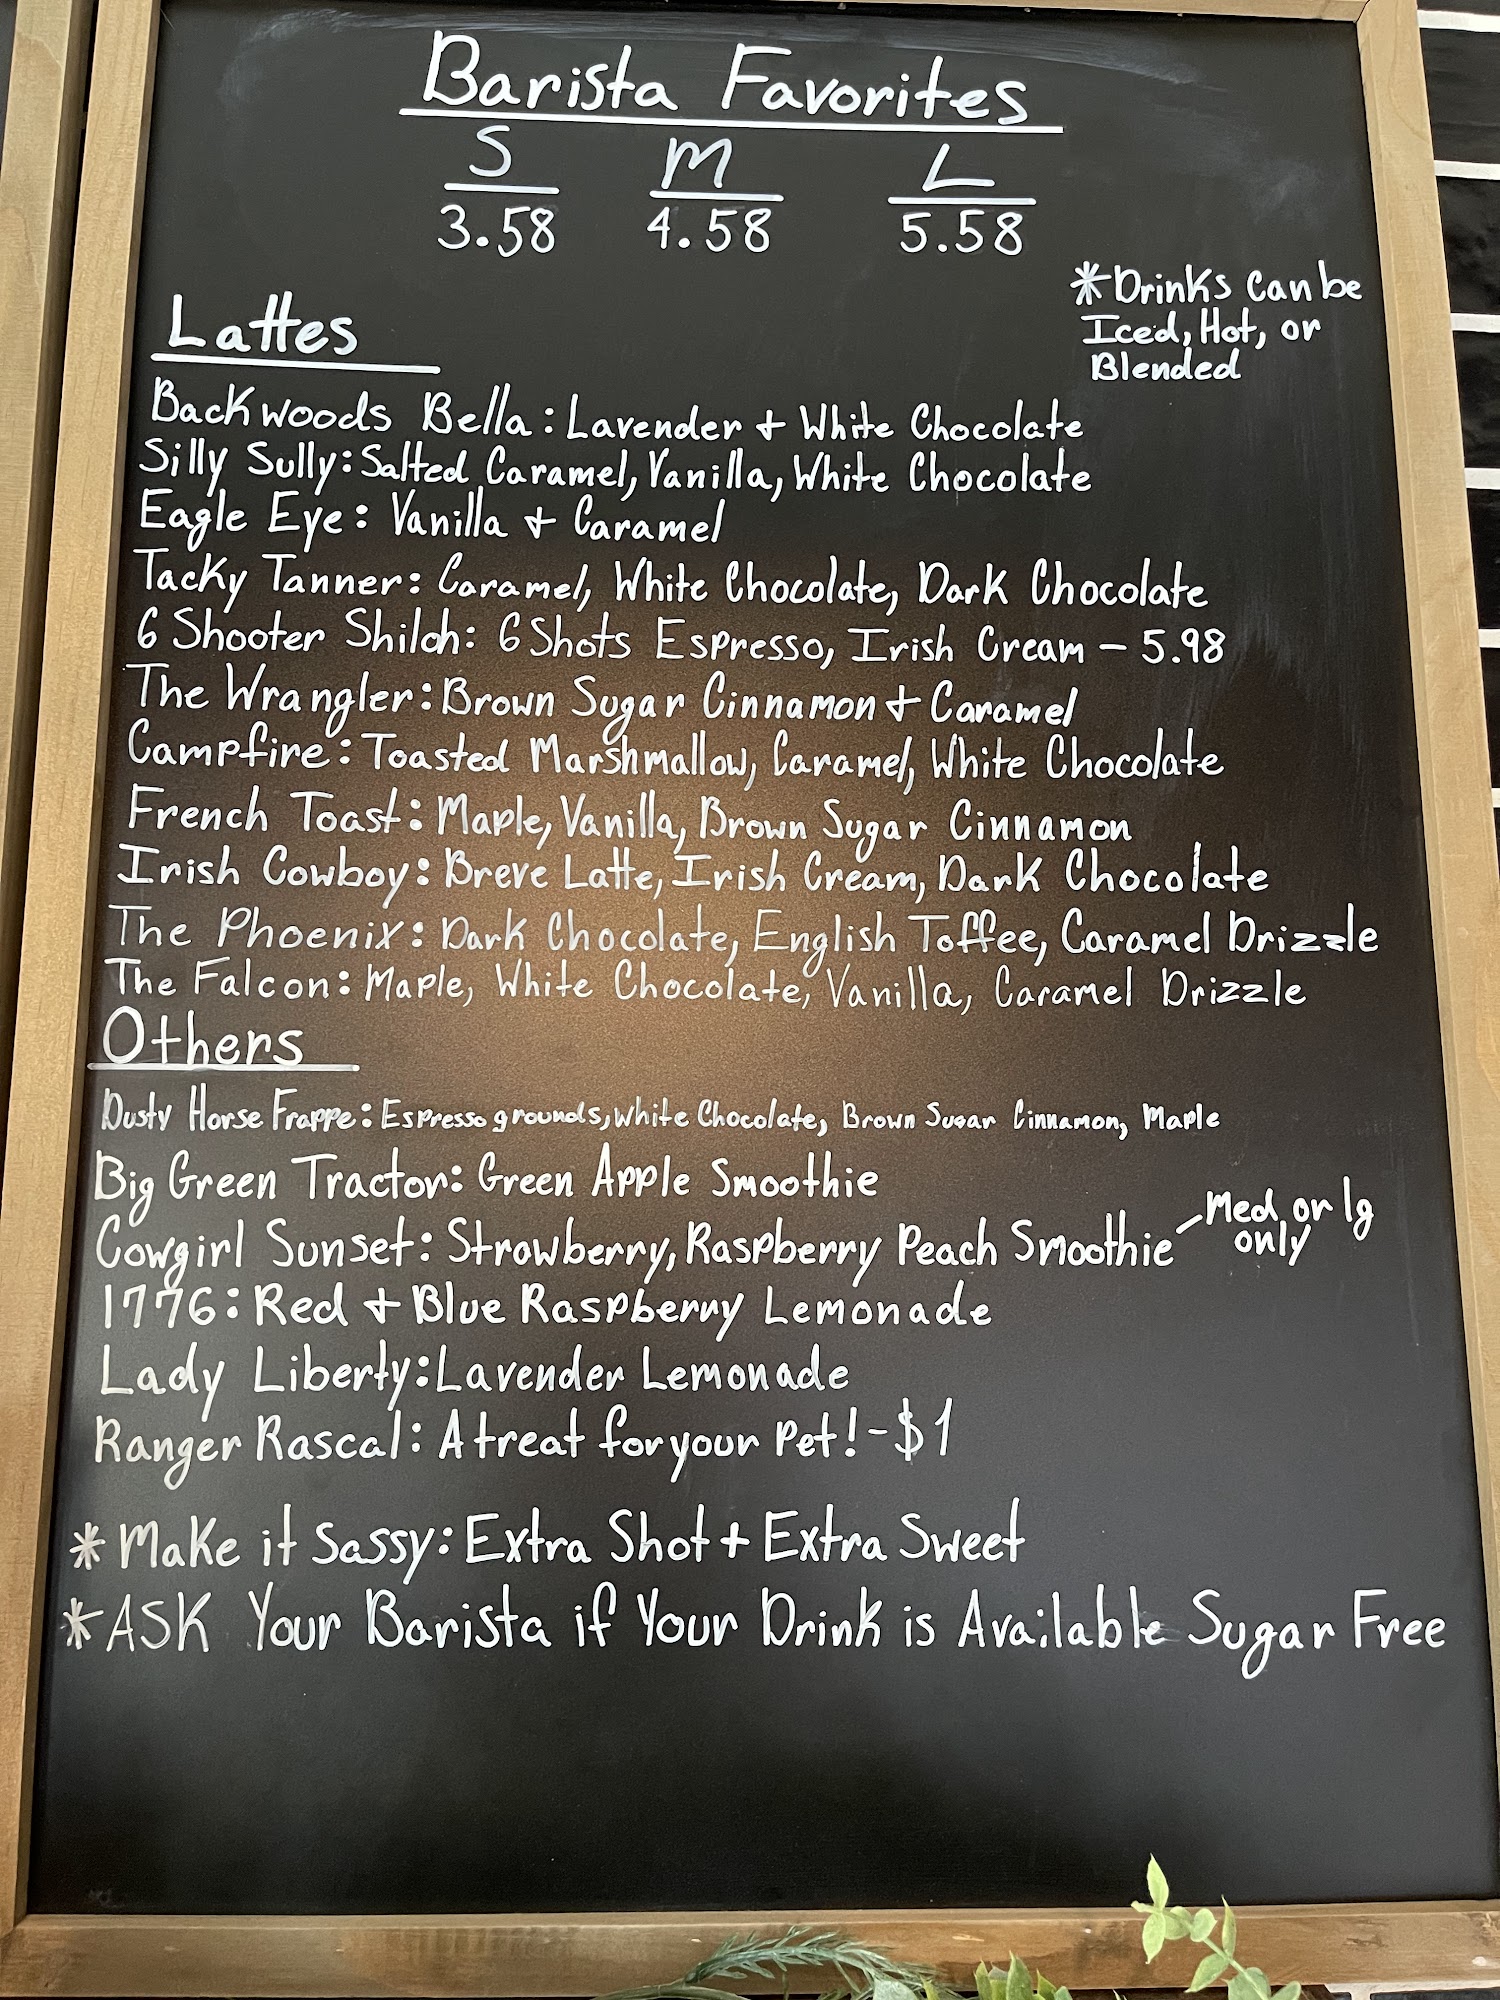 Barista Favorites
S M L
3.58 4.58 5.58
*Drinks can be
Iced, Hot, or
Blended
Lattes
Backwoods Bella: Lavender + White Chocolate
Silly Sully: Salted Caramel, Vanilla, White Chocolate
Eagle Eye: Vanilla + Caramel
Tacky Tanner: Caramel, White Chocolate, Dark Chocolate
6 Shooter Shiloh: 6 Shots Espresso, Irish Cream - 5.98
The Wrangler: Brown Sugar Cinnamon + Caramel
Campfire: Toasted Marshmallow, Caramel, White Chocolate
French Toast: Maple, Vanilla, Brown Sugar Cinnamon
Irish Cowboy: Breve Latte, Irish Cream, Dark Chocolate
The Phoenix: Dark Chocolate, English Toffee, Caramel Drizzle
The Falcon: Maple, White Chocolate, Vanilla, Caramel Drizzle
Others
Dusty Horse Frappe: Espresso grounds, White Chocolate, Brown Sugar Cinnamon, Maple
Big Green Tractor: Green Apple Smoothie
Cowgirl Sunset: Strawberry, Raspberry Peach Smoothie - Med or lg
only
1776: Red + Blue Raspberry Lemonade
Lady Liberty: Lavender Lemonade
Ranger Rascal: A treat for your Pet! - $1
*Make it Sassy: Extra Shot + Extra Sweet
*ASK Your Barista if Your Drink is Available Sugar Free